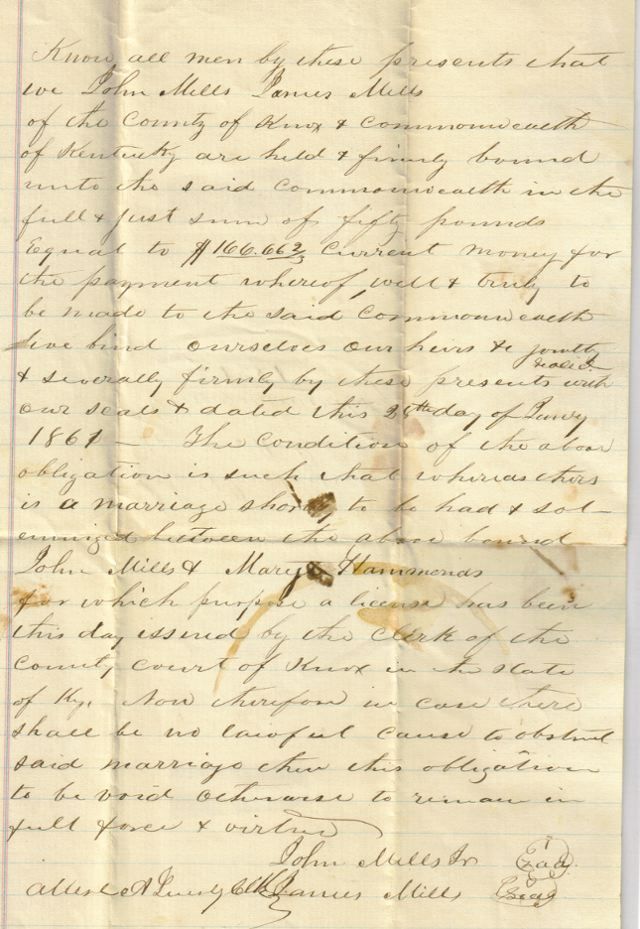 Know all men by these presents that
we John Mills James Mills
of the County of Knox & Commonwealth
of Kentucky are held & firmly bound
unto the said Commonwealth in the
full & just sum of fifty pounds
Equal to $166.66 2/3 Current money for
the payment whereof, well & truly to
be made to the said Commonwealth
we bind ourselves our heirs &c jointly
& severally firmly by these presents with
our seals & dated this day of Jany
1861 — The Condition of the above
obligation is such that whereas thers
is a marriage shortly to be had & sol-
emnized between the above bound
John Mills & Mary Hammonds
for which purpose a license has been
this day issued by the Clerk of the
County Court of Knox in the State
of Ky. Now therefore in case there
shall be no lawful cause to obstruct
said marriage then this obligation
to be void otherwise to remain in
full force & virtue
John Mills Jr
Attest Clk James Mills